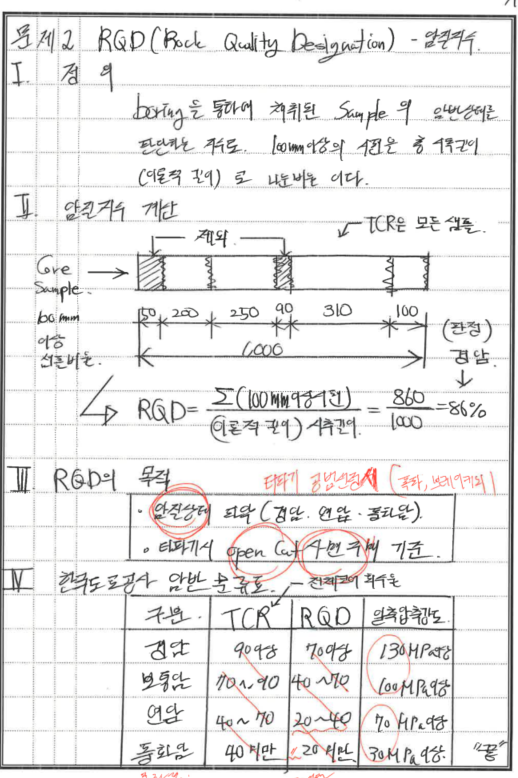 문제2 RQD (Rock Quality Designation) - 암질지수.
I. 정의
boring을 통하여 채취된 Sample의 암반상태를
판단하는 지수로. 100mm이상의 시편은 총 시추길이
(이론적 길이)로 나눈 비율이다.
II. 암질지수 계산
제외. TCR은 모든 샘플.
Core
Sample.
50 200 250 90 310 100
100mm
이상
1,000
(판정)
경암.
RQD = Σ(100mm이상시편) / (이론적 길이) 시추길이. = 860 / 1000 = 86%
III. RQD의 목적
터파기 공법선정시
· 암질상태 파악 (경암. 연암. 풍화암).
· 터파기시 open Cut 사면구배 기준.
IV 한국도로공사 암반 분류표.
구분. TCR RQD 일축압축강도.
경암 90이상 70이상 130MPa이상
보통암 70~90 40~70 100MPa이상
연암 40~70 20~40 70MPa이상
풍화암 40미만 20미만 30MPa이상. "끝"